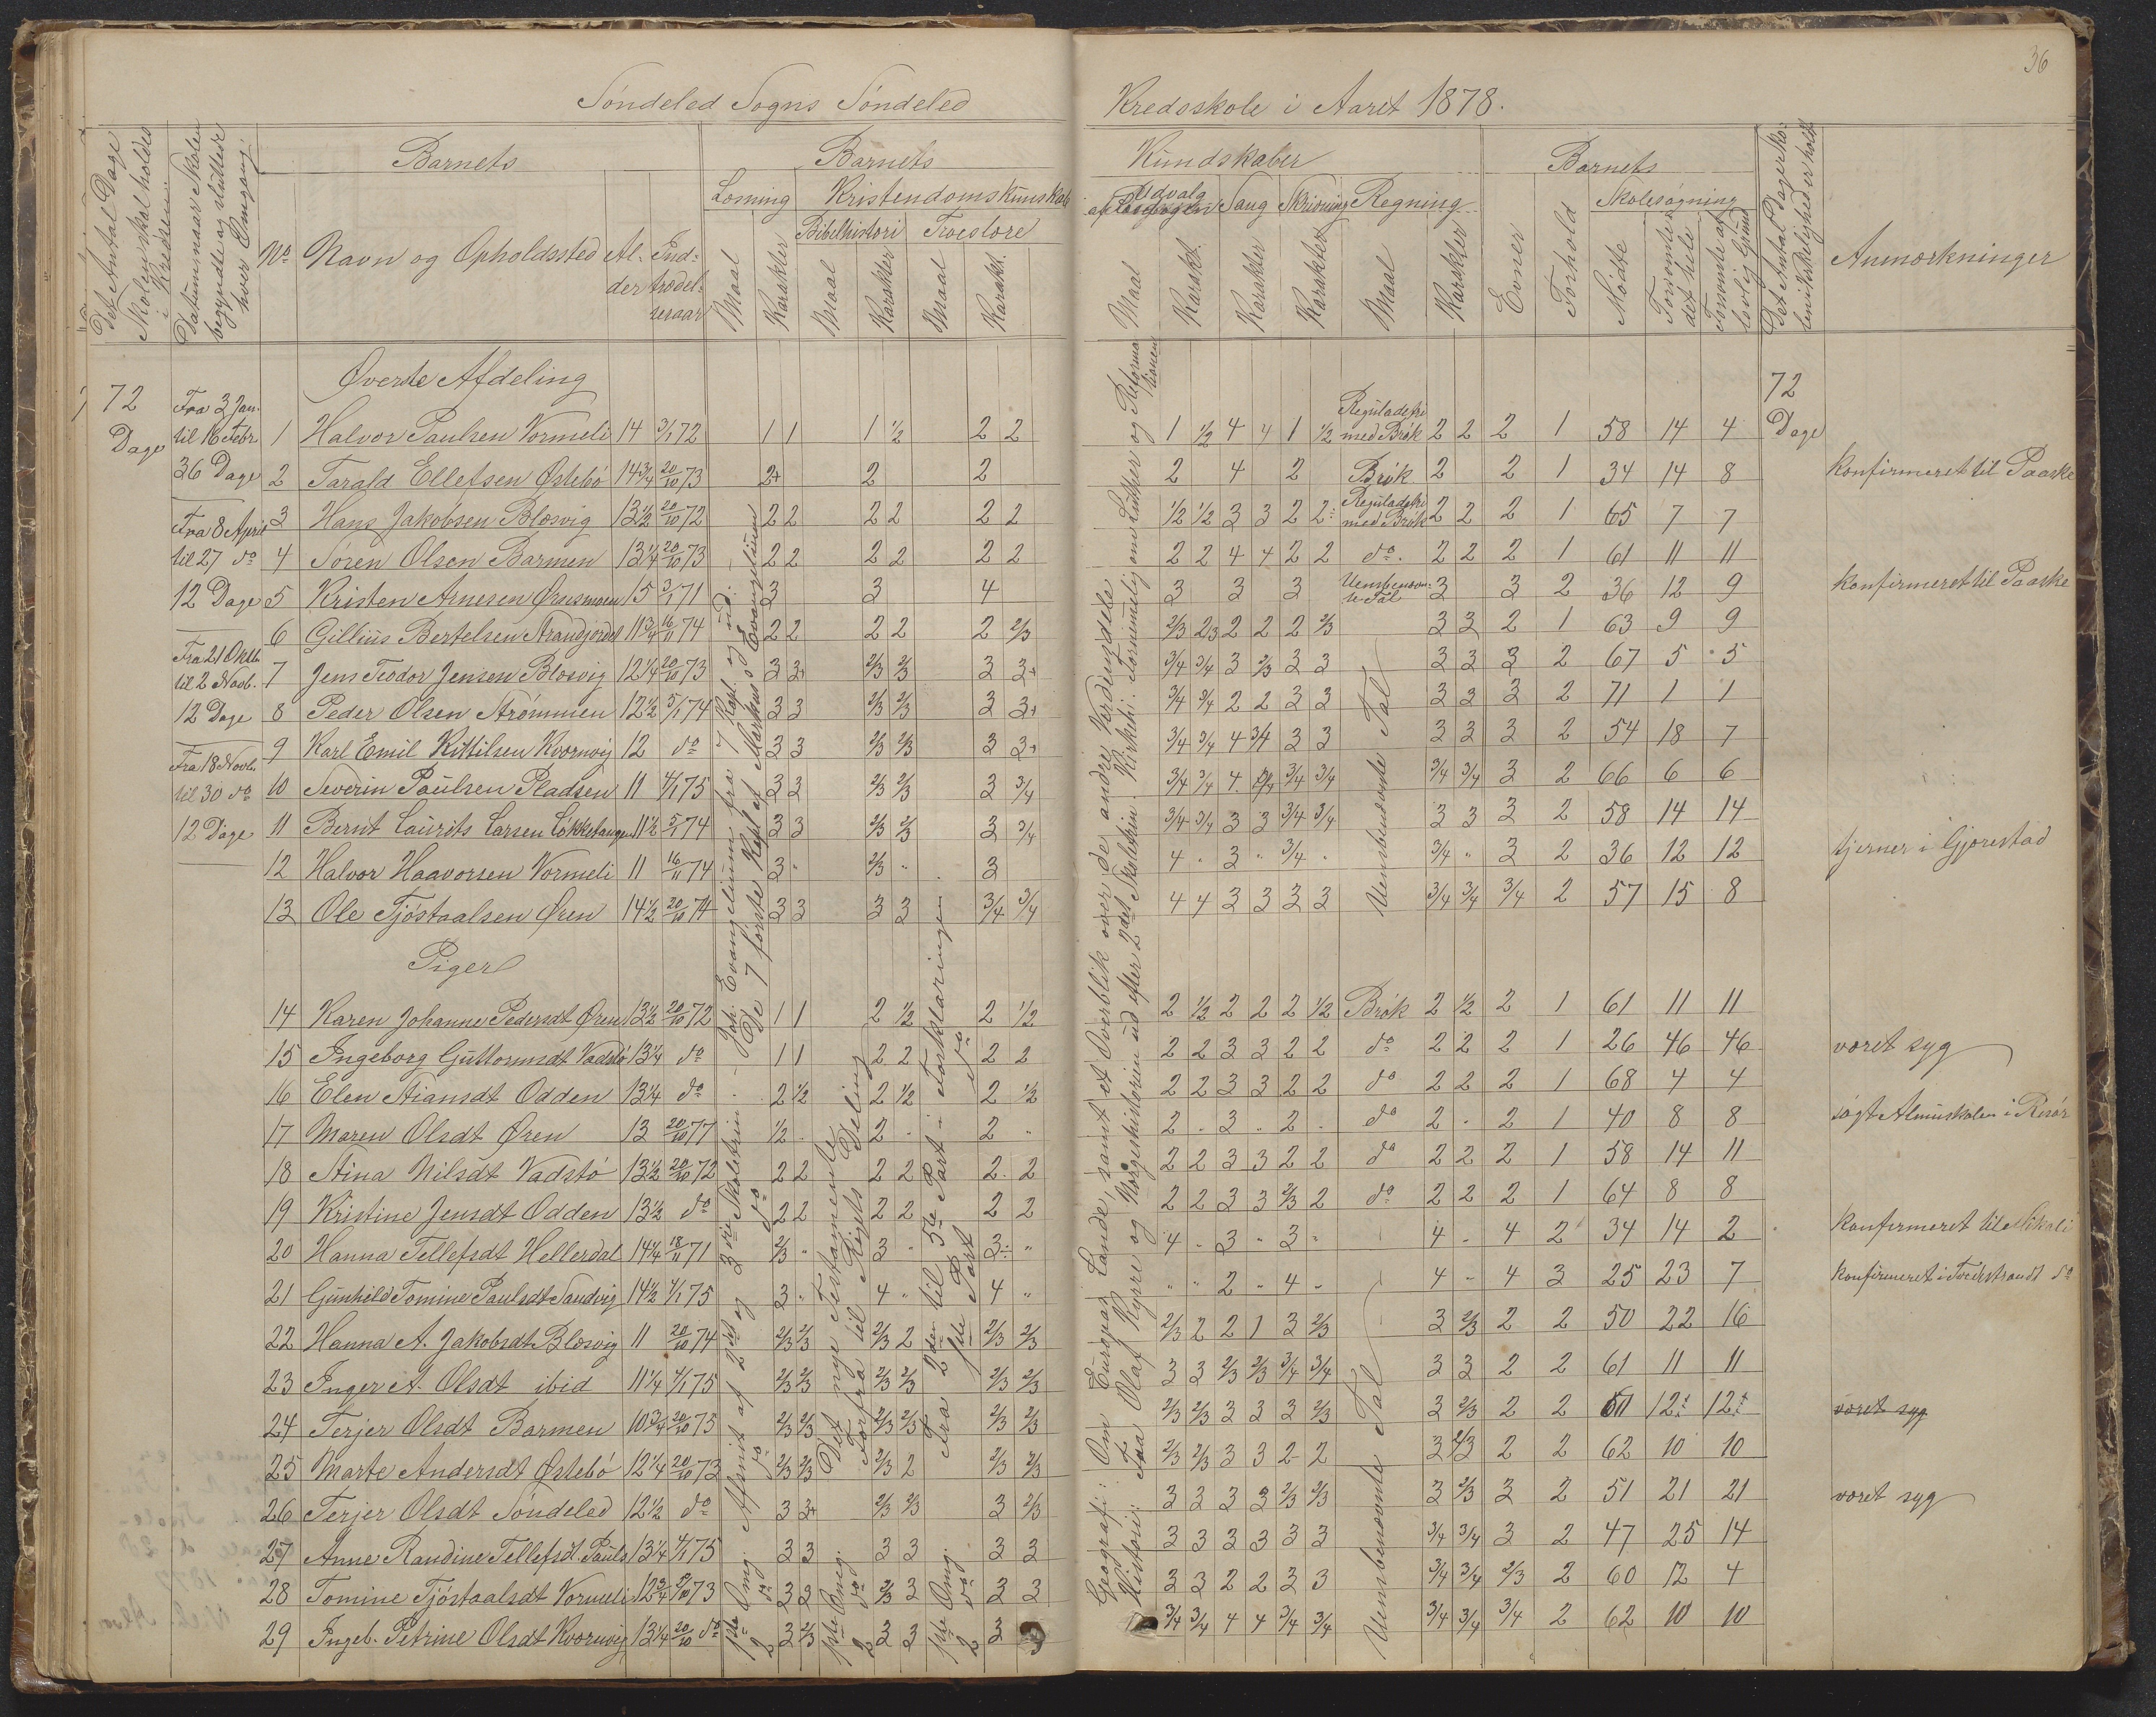 36
Søndeled Sogns Søndeled Kredsskole i Aaret 1878.
Det Antal Dage Skolen skal holdes i Kredsen
Datum naar Skolen begyndte og sluttede hver Omgang
Barnets
No
Navn og Opholdssted
Alder
Indtrædelsesaar
Barnets Kundskaber
Læsning
Maal
Karakter
Kristendomskundskab
Bibelhistori
Maal
Karakter
Troeslære
Maal
Karakt.
Udvalg af Læsebogen
Maal
Karakt.
Sang
Karakter
Skrivning
Karakter
Regning
Maal
Karakter
Barnets
Evner
Forhold
Skolesøgning
Mødte
Forsømte det hele
Forsømte af lovlig Grund
Det Antal Dage Skolen i Virkeligheden er holdt
Anmærkninger
72 Dage
Fra 3 Jan.
til 16 Febr
36 Dage
Fra 8 April
til 27 do
12 Dage
Fra 21 Oktb.
til 2 Novb.
12 Dage
Fra 18 Novb.
til 30 do
12 Dage
72 Dage
Øverste Afdeling
1 Halvor Paulsen Vormeli 14 3/1 72 1 1 1 1/2 2 2 1 1/2 4 4 1 1/2 Reguladetri med Brøk 2 2 2 1 58 14 4
2 Tarald Ellefsen Østebø 14 3/4 20/10 73 2+ 2 2 2 4 2 Brøk 2 2 1 34 14 8 konfirmeret til Paaske
3 Hans Jakobsen Blæsvig 13 1/2 20/10 72 2 2 2 2 2 2 1/2 1/2 3 3 2 2÷ Reguladetri med Brøk 2 2 2 1 65 7 7
4 Søren Olsen Barmen 13 1/4 20/10 73 2 2 2 2 2 2 2 2 4 4 2 2 do. 2 2 2 1 61 11 11
5 Kristen Arnesen Ørnsmoen 15 3/1 71 3 3 4 3 3 3 Uensbenævnte Tal 3 3 2 36 12 9 konfirmeret til Paaske
6 Gillius Bertelsen Strandjordet 11 3/4 16/11 74 2 2 2 2 2 2/3 2/3 2/3 2 2 2 2/3 3 3 2 1 63 9 9
7 Jens Teodor Jensen Blæsvig 12 1/4 20/10 73 3 3+ 2/3 2/3 3 3+ 3/4 3/4 3 2/3 3 3 3 3 3 2 67 5 5
8 Peder Olsen Strømmen 12 1/2 5/1 74 3 3 2/3 2/3 3 3+ 3/4 3/4 2 2 3 3 3 3 3 2 71 1 1
9 Karl Emil Kittilsen Kvornvig 12 do 3 3 2/3 2/3 3 3+ 3/4 3/4 4 3/4 3 3 3 3 3 2 54 18 7
10 Severin Paulsen Pladsen 11 4/1 75 3 3 2/3 2/3 3 3/4 3/4 3/4 4 3/4 3/4 3/4 3/4 3 2 66 6 6
11 Bernt Laurits Larsen Løkketangen 11 1/2 5/1 74 3 3 2/3 2/3 3 3/4 3/4 3/4 3 3 3/4 3/4 3 3 3 2 58 14 14
12 Halvor Haavorsen Vormeli 11 16/11 74 3 " 2/3 " 3 4 " 3 " 3/4 " 3/4 " 3 2 36 12 12 tjerner i Gjærestad
13 Ole Tjøstaalsen Øren 14 1/2 20/10 74 3 3 3 3 3/4 3/4 4 4 3 3 3 3 3/4 3/4 3/4 2 57 15 8
Piger
14 Karen Johanne Pedersdt Øren 13 1/2 20/10 72 1 1 2 1/2 2 1/2 2 1/2 2 2 2 1/2 Brøk 2 1/2 2 1 61 11 11
15 Ingeborg Guttormsdt Vadstø 13 1/4 do 1 1 2 2 2 2 2 2 3 3 2 2 do 2 2 2 1 26 46 46 været syg
16 Elen Stiansdt Odden 13 1/4 do 2 1/2 2 1/2 2 1/2 2 2 3 3 2 2 do 2 2 2 1 68 4 4
17 Maren Olsdt Øren 13 20/10 77 1/2 2 " 2 " 2 " 3 " 2 " do 2 " 2 1 40 8 8 søgt Almuskolen i Risør
18 Stina Nilsdt Vadstø 13 1/2 20/10 72 2 2 2 2 2 2 2 2 3 3 2 2 do 2 2 2 1 58 14 11
19 Kristine Jensdt Odden 13 1/2 do 2 2 2 2 2 2 2 2 3 3 2/3 2 do 2 2 2 1 64 8 8
20 Hanna Tellefsdt Hellersdal 14 1/4 18/11 71 2/3 " 3 " 3÷ " 4 " 3 " 3 " 4 " 4 2 34 14 2 konfirmeret til Mikali
21 Gunhild Tomine Paulsdt Sandvig 14 1/2 4/1 75 3 " 4 " 4 " " " 2 " 4 " 4 " 4 3 25 23 7 konfirmeret i Tvedestrand do
22 Hanna A. Jakobsdt Blæsvig 11 20/10 74 2/3 2/3 2/3 2 2/3 2/3 2/3 2 2 1 3 2/3 3 2/3 2 2 50 22 16
23 Inger A. Olsdt ibid 11 1/4 4/1 75 2/3 2/3 2/3 2/3 2/3 2/3 3 3 2/3 2/3 3/4 3/4 3 3 2 2 61 11 11
24 Terjer Olsdt Barmen 10 3/4 20/10 75 2/3 2/3 2/3 2/3 2/3 2/3 2/3 2/3 3 3 3 2/3 3 2/3 2 2 12 12 været syg
25 Marte Andersdt Østebø 12 1/4 20/10 73 2/3 2/3 2/3 2 2/3 2/3 2/3 2/3 3 3 2 2 3 2/3 2 2 62 10 10
26 Terjer Olsdt Søndeled 12 1/2 do 3 3+ 2/3 2/3 3 2/3 3 3 3 3 2/3 2/3 3 2/3 3 2 51 21 21 været syg
27 Anne Randine Tellefsdt. Pauls 13 1/4 4/1 75 3 3 3 3 3 3 3 3 3 3 3 3 3/4 3/4 3 2 47 25 14
28 Tomine Tjøstaalsdt Vormeli 12 3/4 73 3 3 2/3 3 3 3 3 3 2 2 3 3 3/4 3/4 2/3 2 60 12 4
29 Ingeb. Petrine Olsdt Kvornvig 13 1/4 20/10 do 3 2/3 3 3 3 3/4 3/4 4 4 3/4 3/4 3/4 3/4 3/4 2 62 10 10
1ste Omg. Afsnit af 2det og 3die Skoletrin - Joh. Evangelium fra 7 Kapt. og ud.
2 do do do De 7 første Kapt. af Markus's Evangelium
1ste Omg. Det nye Testamente
2 do Forfra til Rigets Deling
1ste Omg. Fra 2den til 5te Part i Forklaringen
2 do Fra 1ste Part do
Geografi: Om Europas Lande, samt et Overblik over de andre Verdensdele
Historie: Fra Olaf Kyrre og Norgeshistorien ud efter 2det Skoletrin. Kirkeh: fornemmelig om Luther og Reformationen
Uensbenævnte Tal
Uensbenævnte Tal